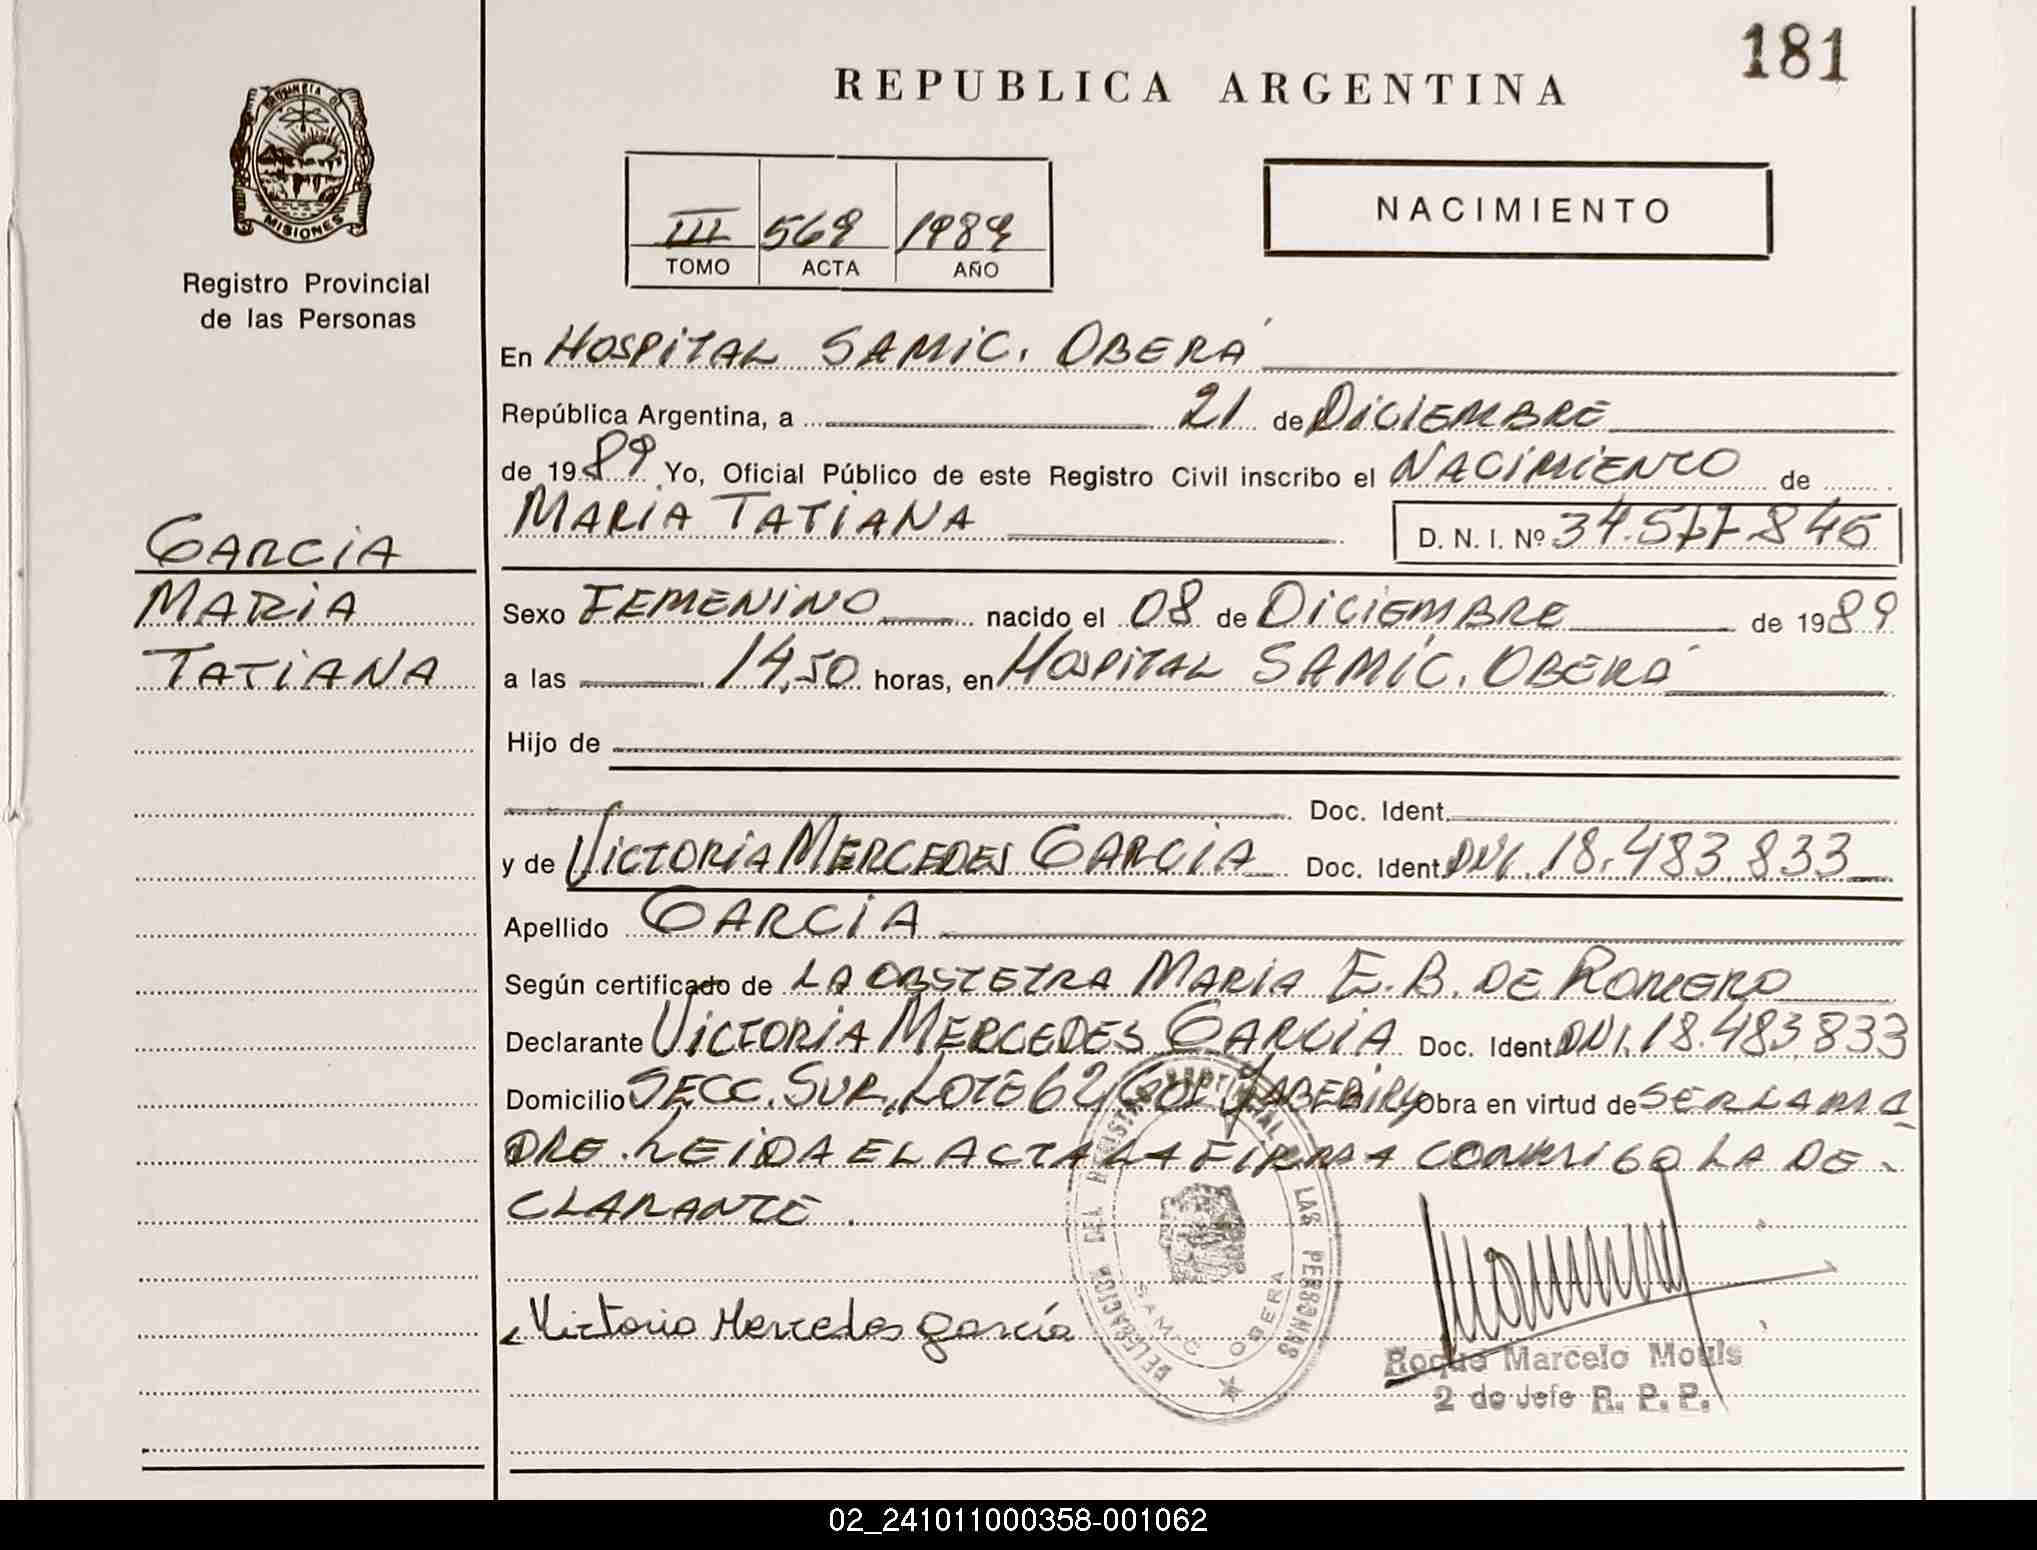 181
REPUBLICA ARGENTINA
PROVINCIA DE
MISIONES
Registro Provincial
de las Personas
III 569 1989
TOMO ACTA AÑO
NACIMIENTO
En HOSPITAL SAMIC. OBERÁ
República Argentina, a 21 de DICIEMBRE
de 1989 Yo, Oficial Público de este Registro Civil inscribo el NACIMIENTO de
MARIA TATIANA D. N. I. Nº 34.577.846
GARCIA
MARIA
TATIANA
Sexo FEMENINO nacido el 08 de DICIEMBRE de 1989
a las 14,50 horas, en HOSPITAL SAMIC. OBERÁ
Hijo de
Doc. Ident.
y de VICTORIA MERCEDES GARCIA Doc. Ident. DNI. 18.483.833
Apellido GARCIA
Según certificado de LA OBSTETRA MARIA E. B. DE ROMERO
Declarante VICTORIA MERCEDES GARCIA Doc. Ident. DNI. 18.483.833
Domicilio SECC. SUR, LOTE 62 COL YABEBIRY Obra en virtud de SER LA MA
DRE. LEIDA EL ACTA LA FIRMA CONMIGO LA DE-
CLARANTE.
Victoria Mercedes garcía
DELEGACION DEL REGISTRO PROVINCIAL DE LAS PERSONAS
SAMIC OBERA
Roque Marcelo Mouls
2 do Jefe R. P. P.
02_241011000358-001062